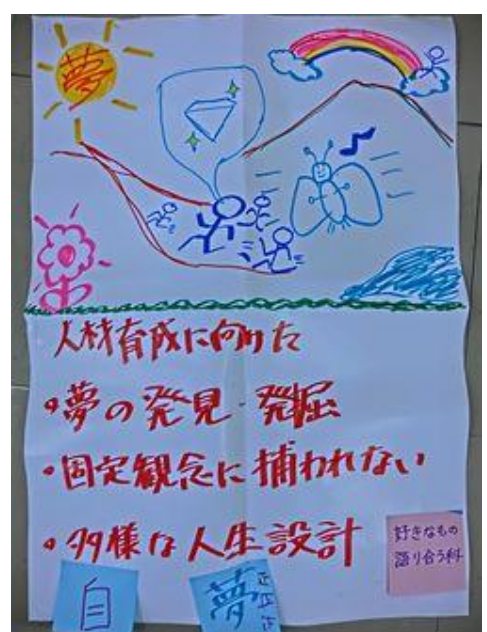 夢
人材育成に向けた
・夢の発見・発掘
・固定観念に捕われない
・多様な人生設計
好きなもの
語り合う科
自
夢